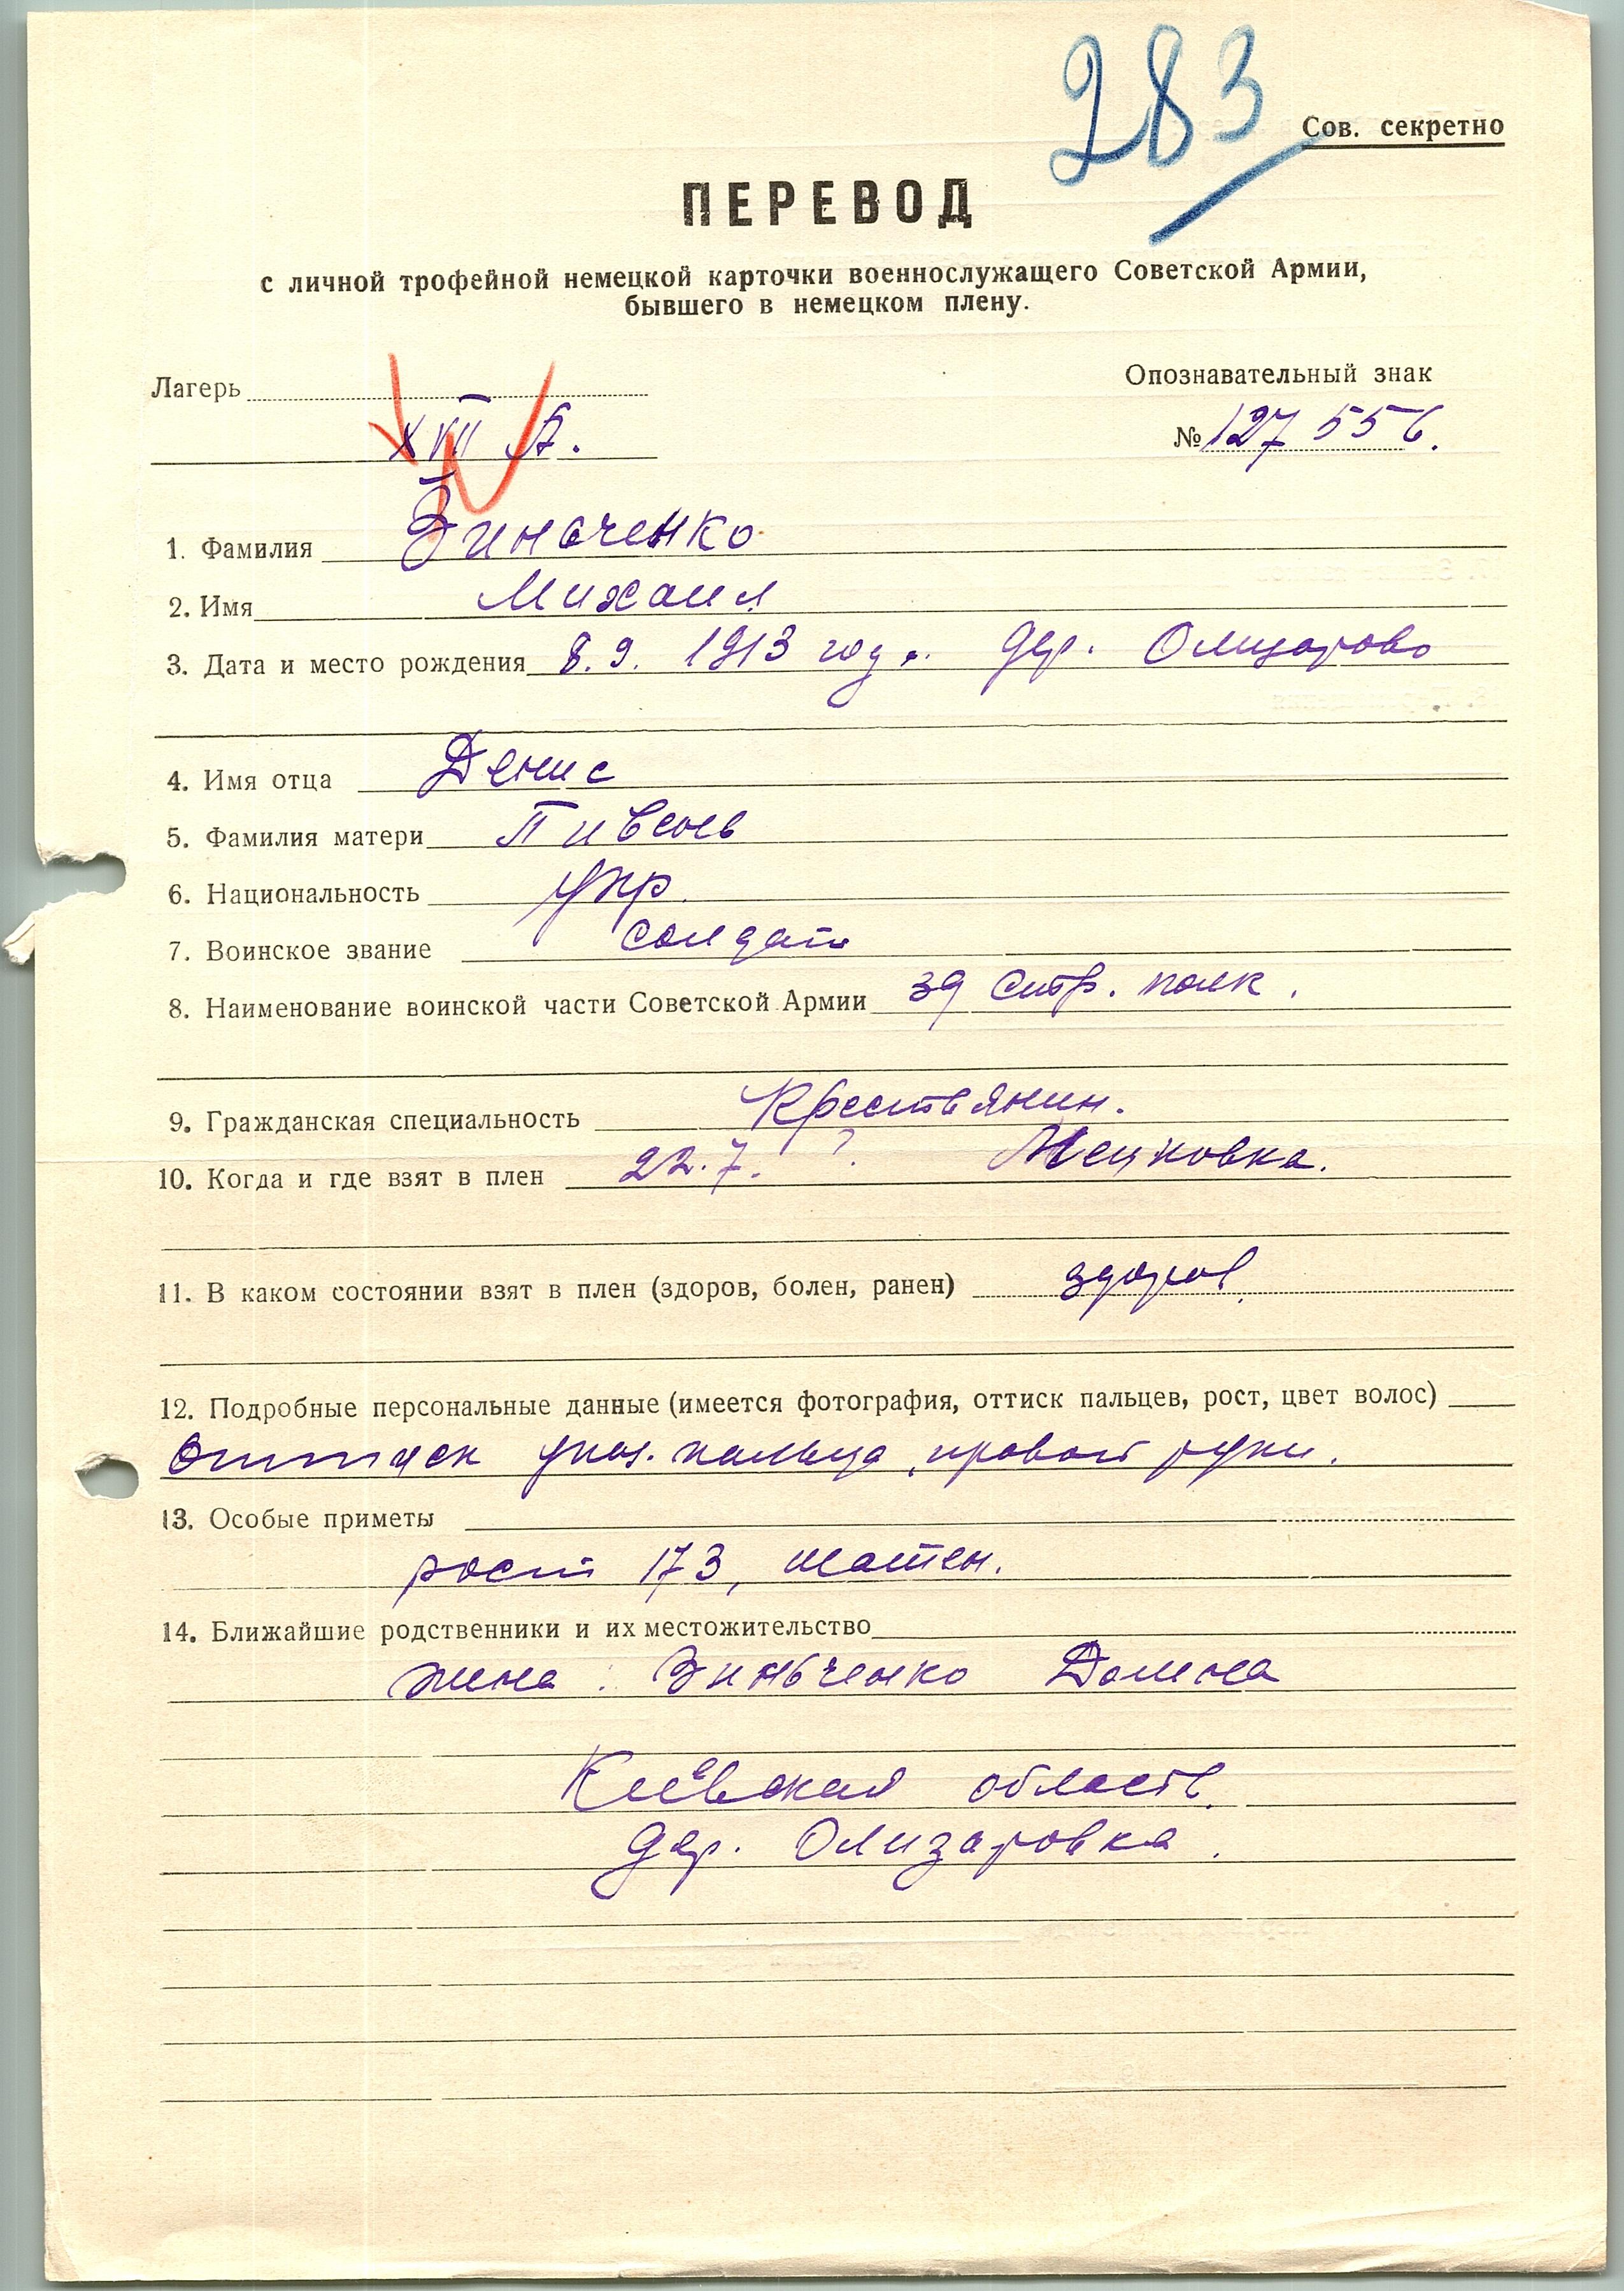 283
Сов. секретно
ПЕРЕВОД
с личной трофейной немецкой карточки военнослужащего Советской Армии,
бывшего в немецком плену.
Лагерь
Опознавательный знак
XVII А.
№ 127 556.
1. Фамилия Зиначенко
2. Имя Михаил
3. Дата и место рождения 8.9. 1913 год. дер. Олизарово
4. Имя отца Денис
5. Фамилия матери
6. Национальность укр.
7. Воинское звание солдат
8. Наименование воинской части Советской Армии 39 стр. полк.
9. Гражданская специальность Крестьянин.
10. Когда и где взят в плен 22.7. ?
11. В каком состоянии взят в плен (здоров, болен, ранен) здоров.
12. Подробные персональные данные (имеется фотография, оттиск пальцев, рост, цвет волос)
Оттиск указ. пальца, правой руки.
13. Особые приметы
рост 173, шатен.
14. Ближайшие родственники и их местожительство
жена: Зиньченко
Киевская область.
дер. Олизаровка.